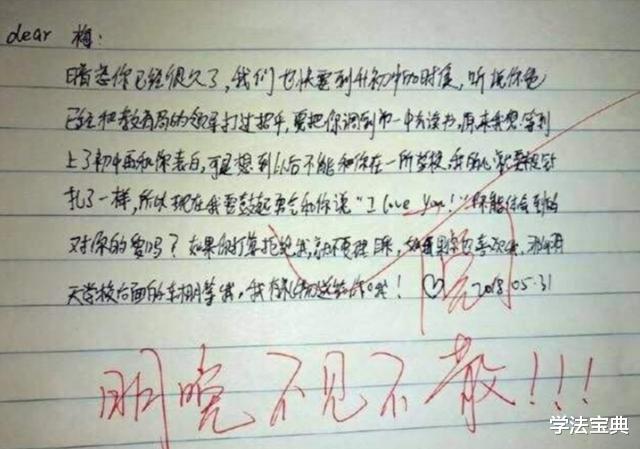 dear 梅:
暗恋你已经很久了,我们也快要到升初中的时候,听说你爸
已经和教育局的领导打过招乎,要把你调到市一中去读书,原来我想等到
上了初中再和你表白,可是想到以后不能和你在一所学校,我的心就要被针
扎了一样,所以现在我要鼓起勇气和你说“I love You!”你能体会到我
对你的爱吗?如果你打算拒绝我,就不要理睬,如果你也喜欢我,那明
天学校后面的车棚等我,我有礼物送给你哦!♡ 2018.05.31
阅
明晚不见不散!!!
学法宝典